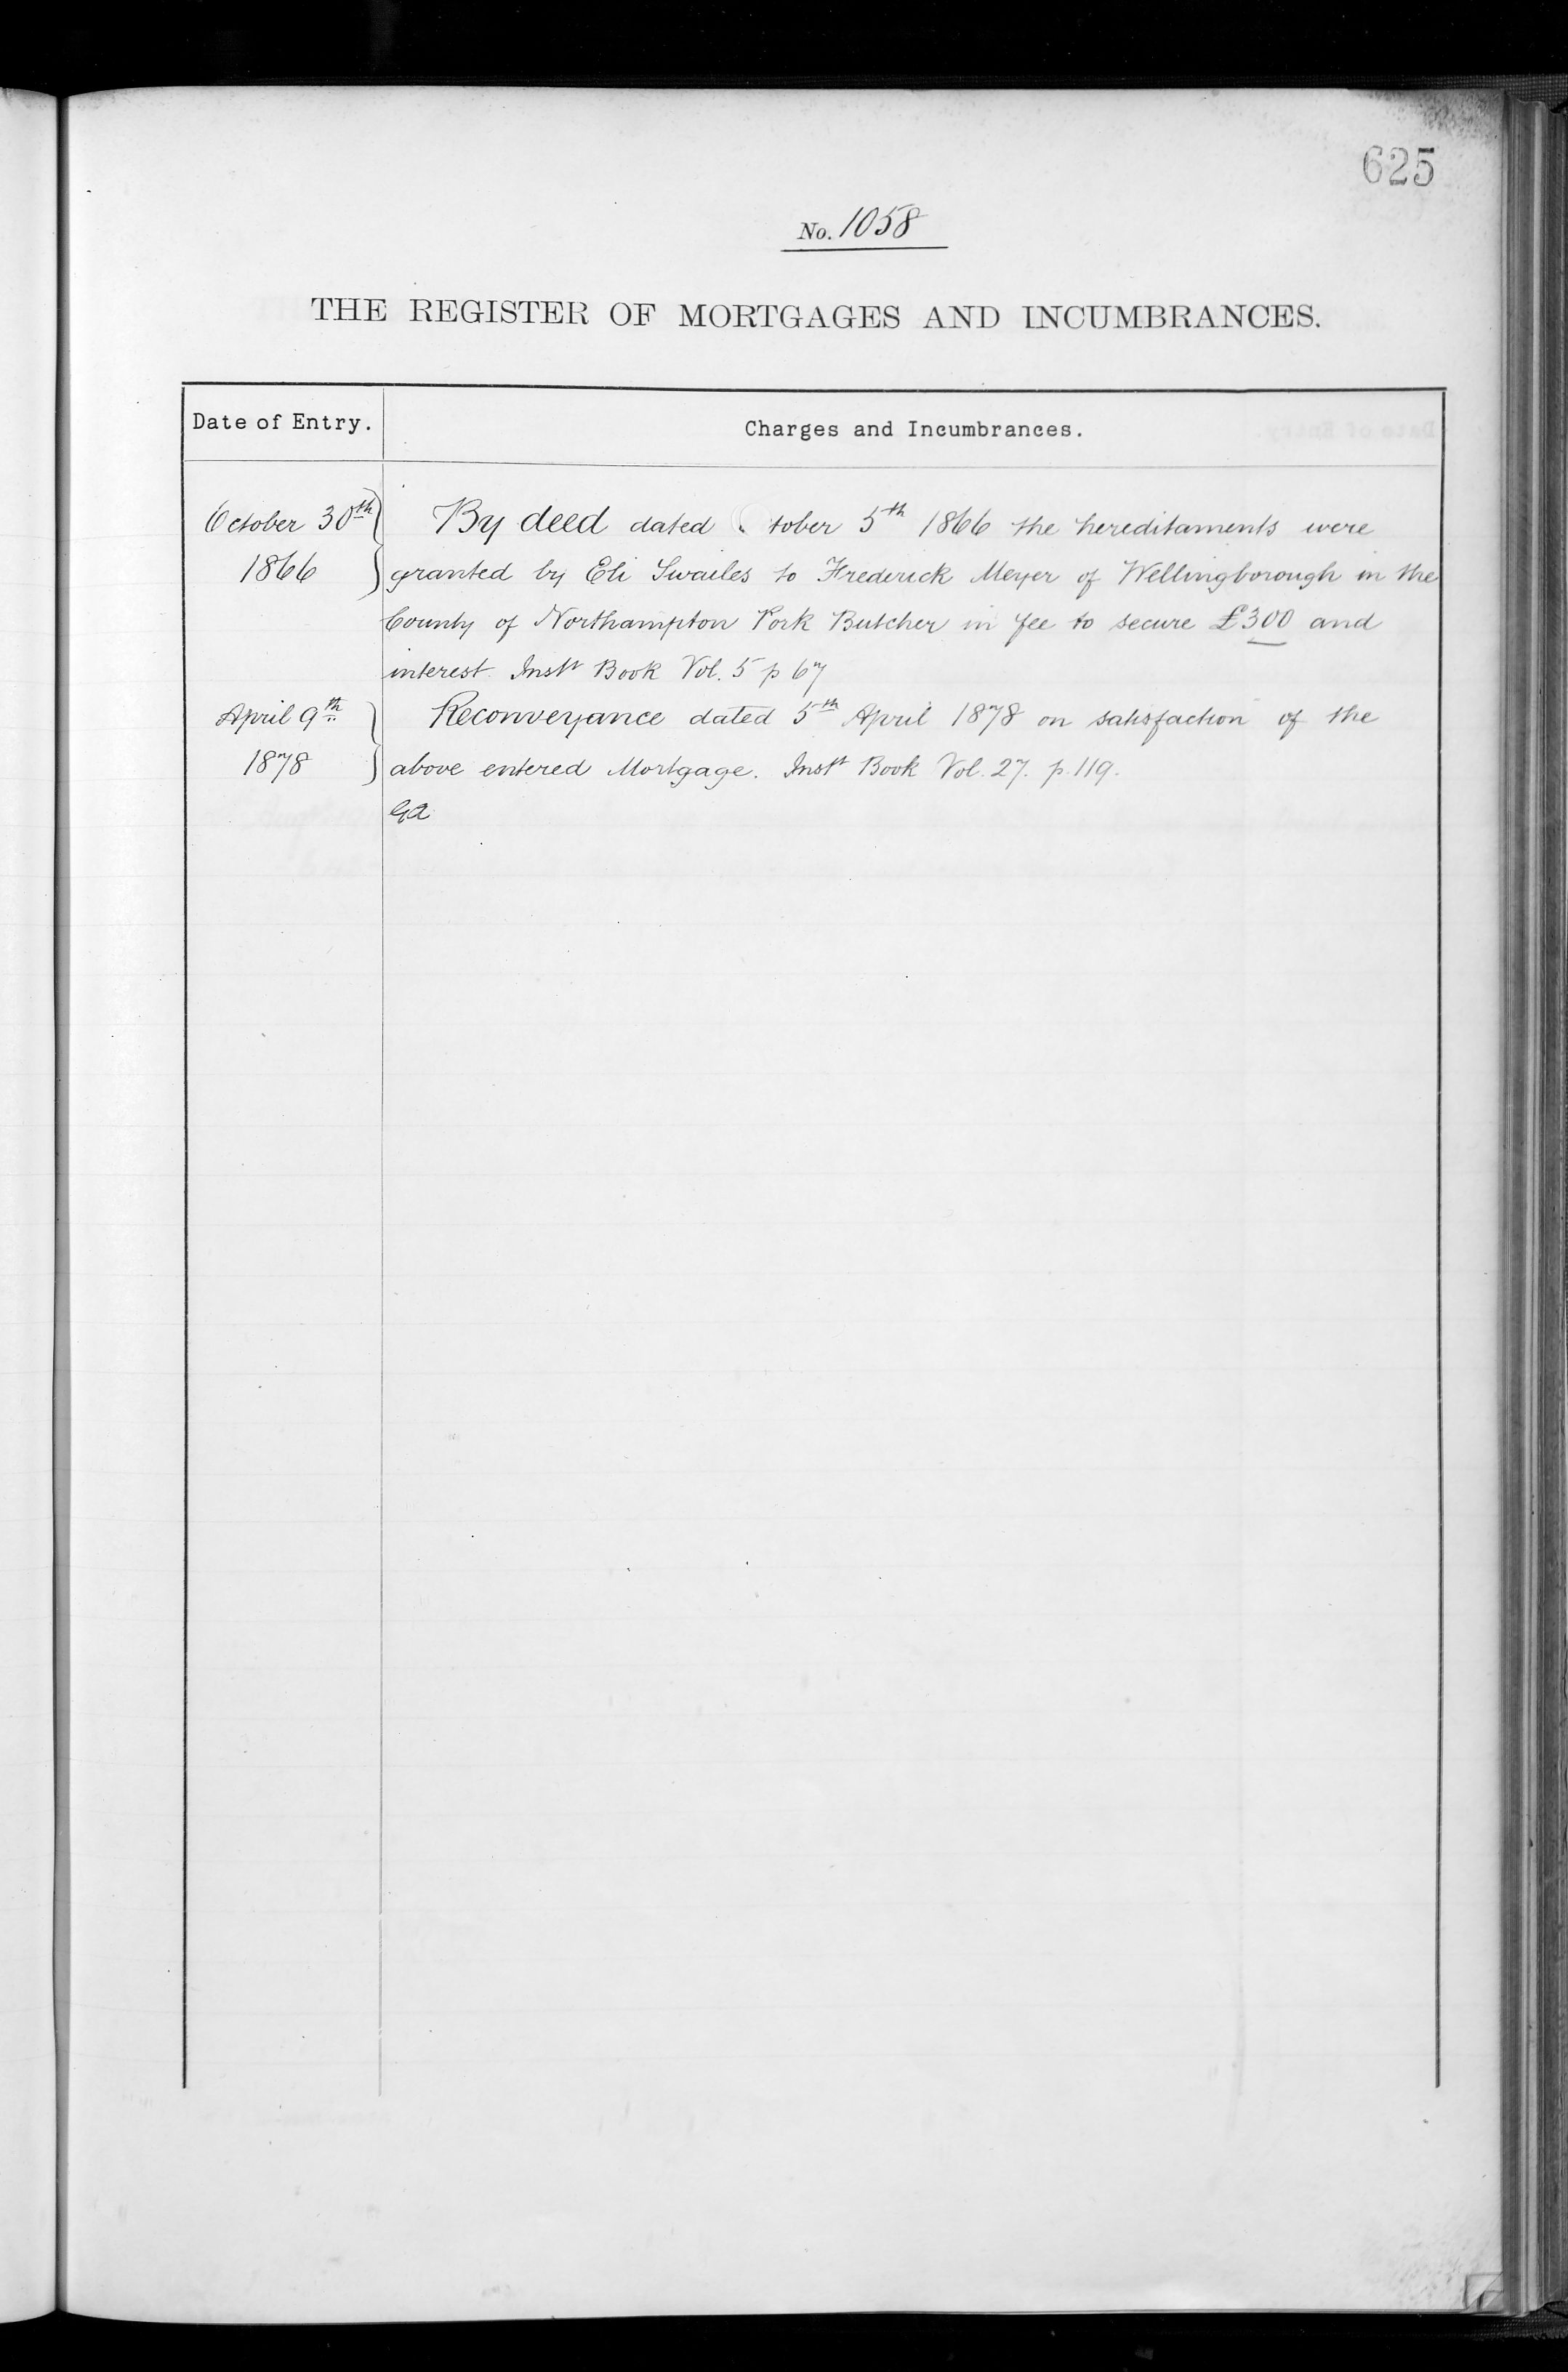 625
No. 1058
THE REGISTER OF MORTGAGES AND INCUMBRANCES.
Date of Entry.
Charges and Incumbrances.
October 30th
1866
By deed dated tober 5th 1866 the hereditaments were
granted by Eli Swailes to Frederick Meyer of Wellingborough in the
County of Northampton Pork Butcher in fee to secure £300 and
interest. Inst Book Vol. 5 p 67
April 9th
1878
Reconveyance dated 5th April 1878 on satisfaction of the
above entered Mortgage. Inst Book Vol. 27. p. 119.